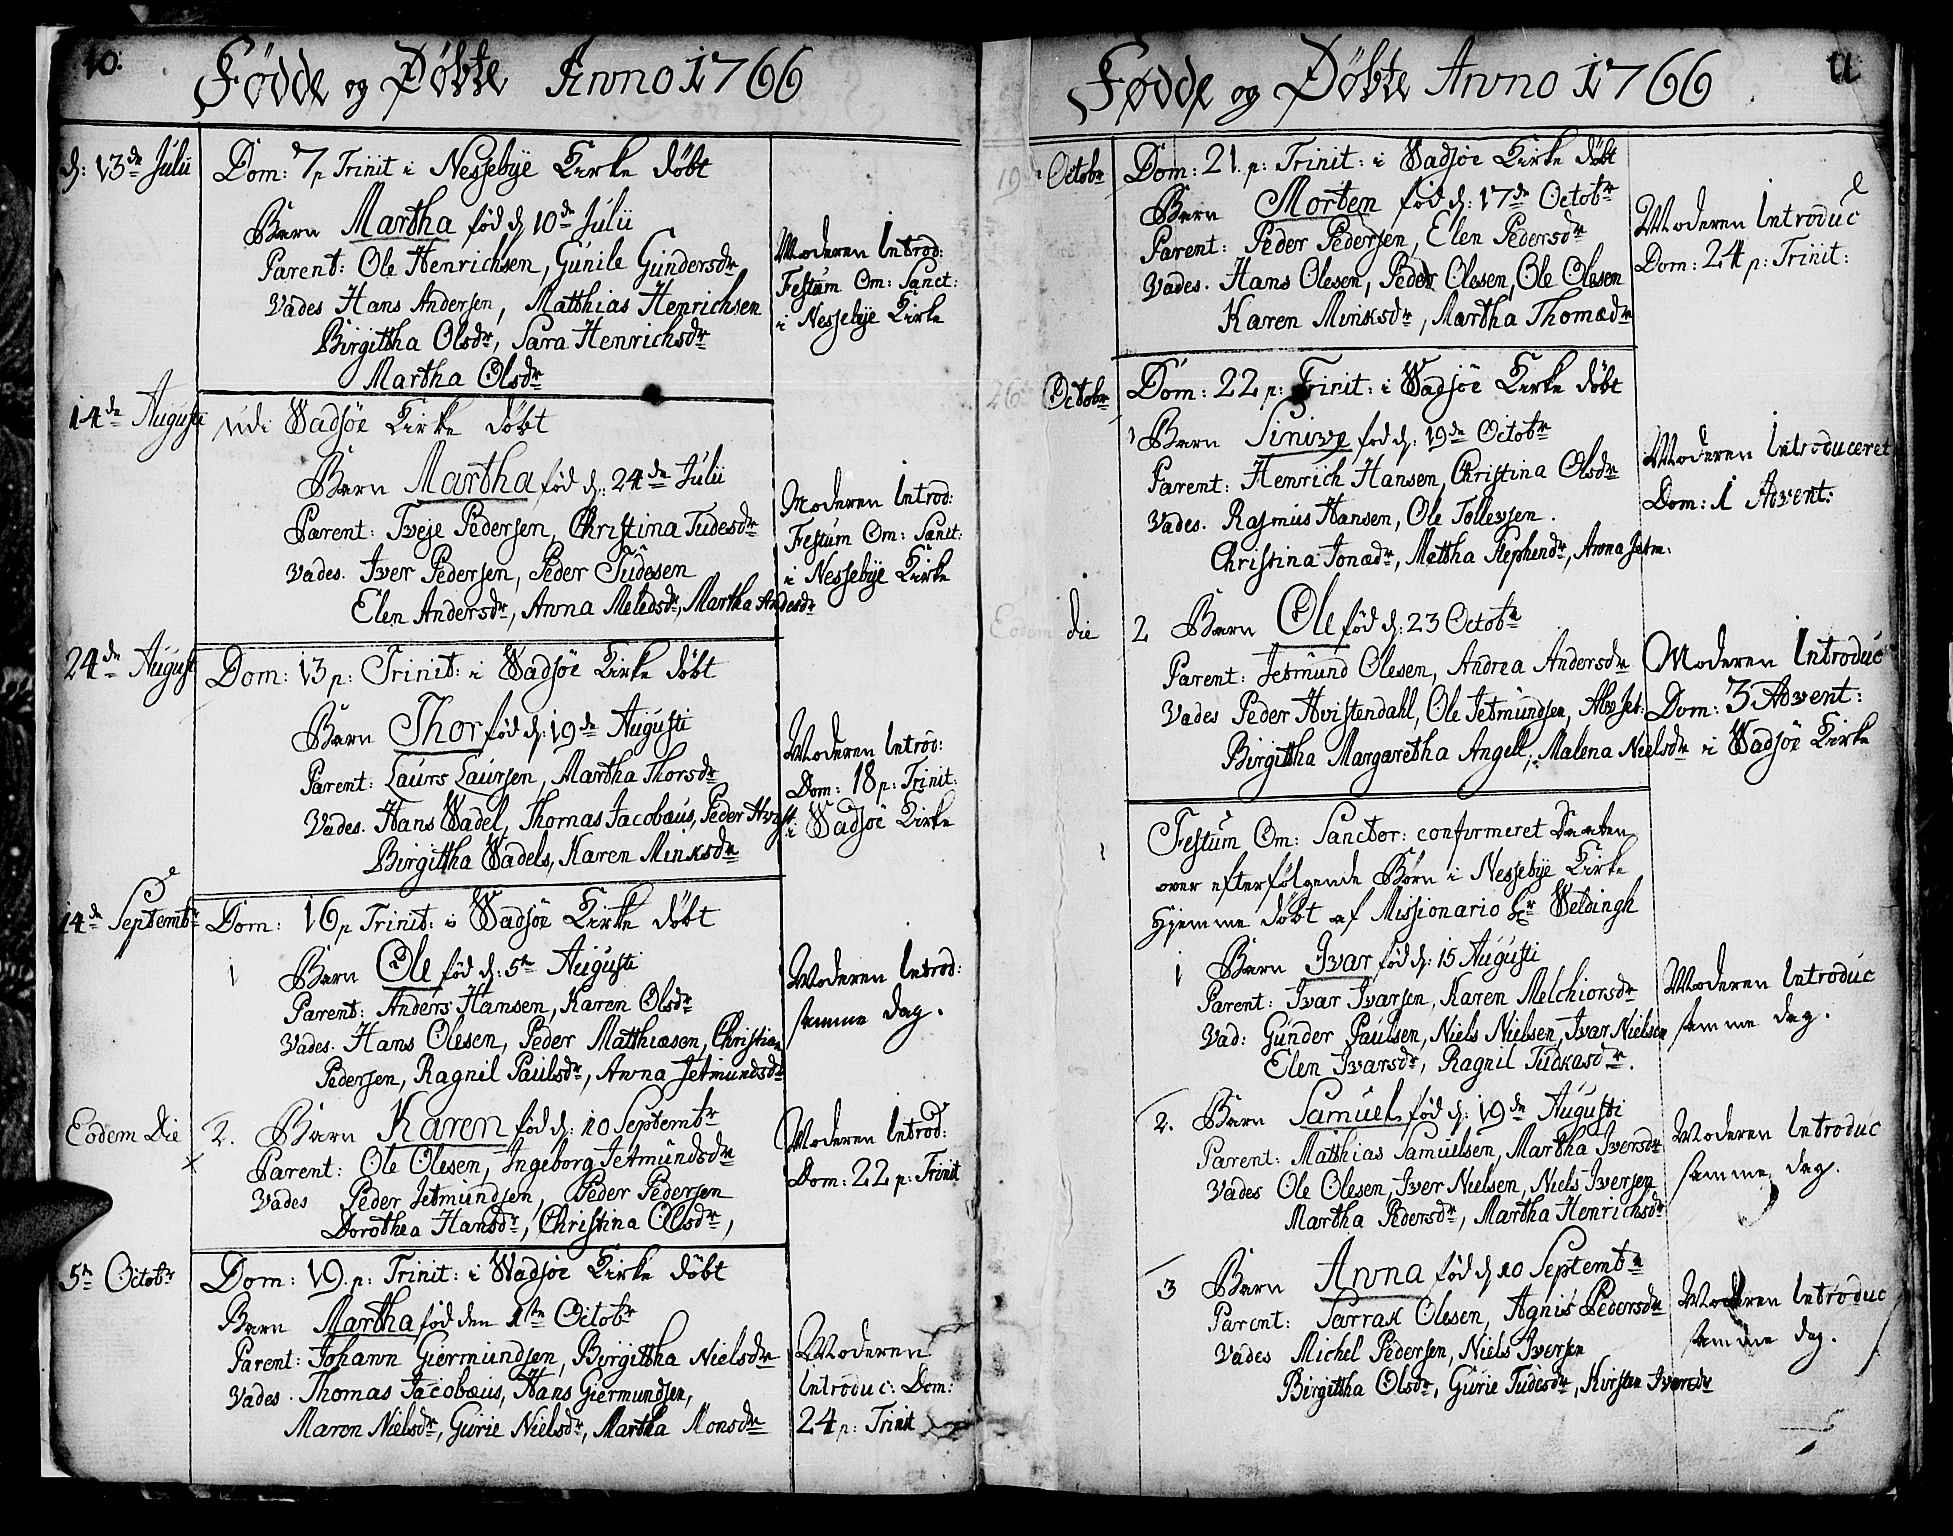 10:
Fødde og Døbte Anno 1766
d: 13de Julii
Dom: 7 p Trinit i Nessebÿe Kirke døbt
Barn Martha fød d 10de Julii
Parent: Ole Henrichsen, Gunile Gundersdr
Vades Hans Andersen, Matthias Henrichsen
Birgittha Olsdr, Sara Henrichsdr
Martha Olsdr
Moderen Introd:
Festum Om: Sanct:
i Nessebÿe Kirke
14de Augusti
udi Wadsöe Kirke døbt
Barn Martha fød d: 24de Julii
Parent: Iveje Pedersen, Christina Tudesdr
Vades. Iver Pedersen, Peder Tudesen
Elen Andersdr, Anna Meledsdr, Martha Andesdr
Moderen Introd:
Festum Om: Sanct:
i Nessebÿe Kirke
24de August
Dom: 13 p: Trinit: i Wadsöe Kirke døbt
Barn Thor fød d: 19de Augusti
Parent: Laurs Laursen, Martha Thorsdr
Vades. Hans Wadel, Thomas Jacobæus, Peder Hvist
Birgittha Wadels, Karen Minksdr
Moderen Introd:
Dom: 18 p: Trinit:
i Wadsöe Kirke
14de Septembr
Dom: 16 p Trinit: i Wadsöe Kirke døbt
1 Barn Ole fød d: 5te Augusti
Parent: Anders Hansen, Karen Olsdr
Vades. Hans Olesen, Peder Matthiæsen, Christian
Pedersen, Ragnil Paulsdr, Anna Jetmundsdr
Moderen Introd:
samme dag.
Eodem Die
2. Barn Karen fød d: 10 Septembr
Parent: Ole Olesen, Ingeborg Jetmundsdr
Vades Peder Jetmundsen, Peder Pedersen
Dorothea Hansdr, Christina Olsdr,
Moderen Introd:
Dom: 22 p: Trinit
5te Octobr
Dom: 19. p: Trinit: i Wadsöe Kirke døbt
Barn Martha fød den 1te Octobr
Parent: Johann Giermundsen, Birgittha Nielsdr
Vades. Thomas Jacobæus, Hans Giermundsen,
Maren Nielsdr, Gurie Nielsdr, Martha Monsdr
Moderen
Introduc: Dom:
24 p: Trinit
11
Fødde og Døbte Anno 1766
19 Octobr
Dom: 21. p: Trinit: i Wadsöe Kirke døbt
Barn Morten fød d: 17de Octobr
Parent: Peder Pedersen, Elen Pedersdr
Vades. Hans Olesen, Peder Olesen, Ole Olesen
Karen Minksdr, Martha Thomædr
Moderen Introduc
Dom: 24 p: Trinit:
26 Octobr
Dom: 22 p: Trinit: i Wadsöe Kirke døbt
1 Barn Sinive fød d: 19de Octobr
Parent: Henrich Hansen, Christina Olsdr
Vades. Rasmus Hansen, Ole Tollevsen.
Christina Jonædr, Mettha Stephendr, Anna Jetm:
Moderen Introduceret
Dom: 1 Advent:
Eodem die
2 Barn Ole fød d: 23 Octobr
Parent: Jetmund Olesen, Andrea Andersdr
Vades Peder Hvistendahl, Ole Jetmundsen, Alv Jet:
Birgittha Margaretha Angell, Malena Nielsdr
Moderen Introduc
Dom: 3 Advent:
i Wadsöe Kirke
Festum Om: Sanctor: confirmeret Daaben
over efterfølgende Børn i Nessebÿe Kirke
Hjemme døbt af Missionario Hr Weldingh
1 Barn Ivar fød d: 15 Augusti
Parent: Ivar Ivarsen, Karen Melchiorsdr
Vad: Gunder Paulsen, Niels Nielsen, Ivar Nielsen
Elen Ivarsdr, Ragnil Tudkasdr.
Moderen Introduc
samme dag.
2. Barn Samuel fød d: 19de Augusti
Parent: Matthias Samuelsen, Martha Iversdr
Vades Ole Olesen, Iver Nielsen, Niels Iversen
Martha Pedersdr, Martha Henrichsdr
Moderen Introduc
samme dag.
3 Barn Anna fød d 10 Septembr
Parent: Sarrak Olesen, Agnis Pedersdr
Vades Michel Pedersen, Niels Iversen
Birgittha Olsdr, Gurie Tudesdr, Kirsten Iversdr
Moderen Introduc
samme dag.